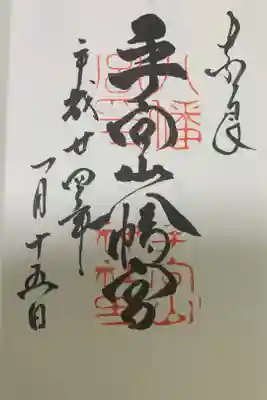 奉拝
手向山八幡宮
平成廿四年
一月十五日